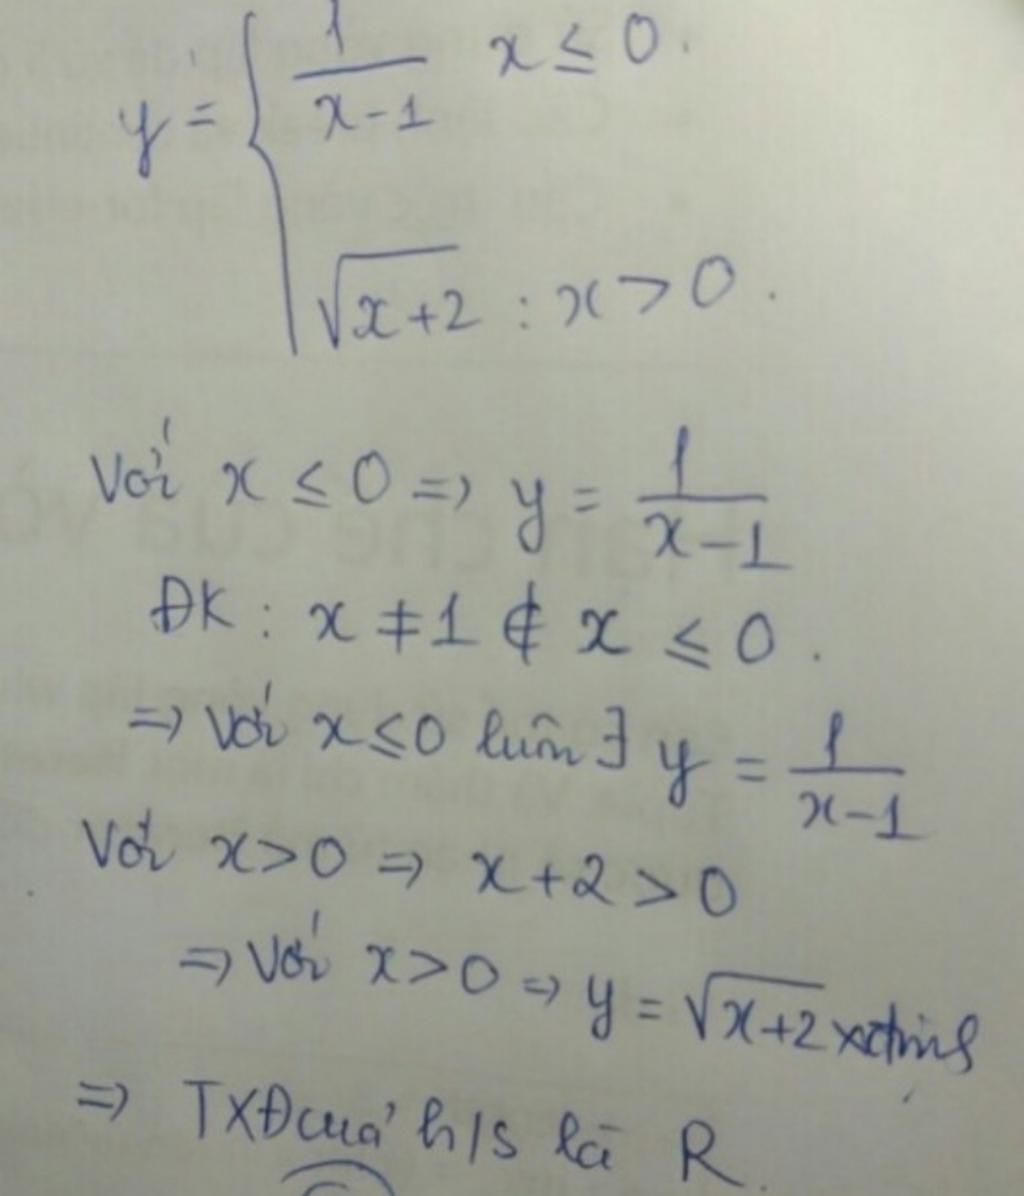 y = { 1/(x-1) x ≤ 0.
√(x+2) : x > 0.
Với x ≤ 0 => y = 1/(x-1)
ĐK : x ≠ 1 ∉ x ≤ 0.
=> Với x ≤ 0 luôn ∃ y = 1/(x-1)
Với x > 0 => x + 2 > 0
=> Với x > 0 => y = √(x+2)
=> TXĐ của h/s là R.